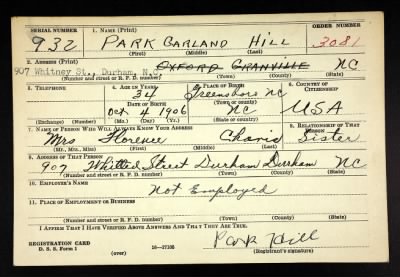 SERIAL NUMBER 1. NAME (Print) ORDER NUMBER
932 PARK GARLAND HILL 3081
(First) (Middle) (Last)
2. ADDRESS (Print)
907 Whitney St., Durham, N.C. OXFORD GRANVILLE NC
(Number and street or R. F. D. number) (Town) (County) (State)
3. TELEPHONE 4. AGE IN YEARS 5. PLACE OF BIRTH 6. COUNTRY OF CITIZENSHIP
34 Greensboro NC
DATE OF BIRTH (Town or county)
Oct 4 1906 NC USA
(Exchange) (Number) (Mo.) (Day) (Yr.) (State or country)
7. NAME OF PERSON WHO WILL ALWAYS KNOW YOUR ADDRESS 8. RELATIONSHIP OF THAT PERSON
Mrs Florence Sister
(Mr., Mrs., Miss) (First) (Middle) (Last)
9. ADDRESS OF THAT PERSON
907 Whitted Street Durham Durham NC
(Number and street or R. F. D. number) (Town) (County) (State)
10. EMPLOYER'S NAME
Not Employed
11. PLACE OF EMPLOYMENT OR BUSINESS
(Number and street or R. F. D. number) (Town) (County) (State)
I AFFIRM THAT I HAVE VERIFIED ABOVE ANSWERS AND THAT THEY ARE TRUE.
REGISTRATION CARD Park Hill
D. S. S. Form 1 (over) 16—17105 (Registrant's signature)